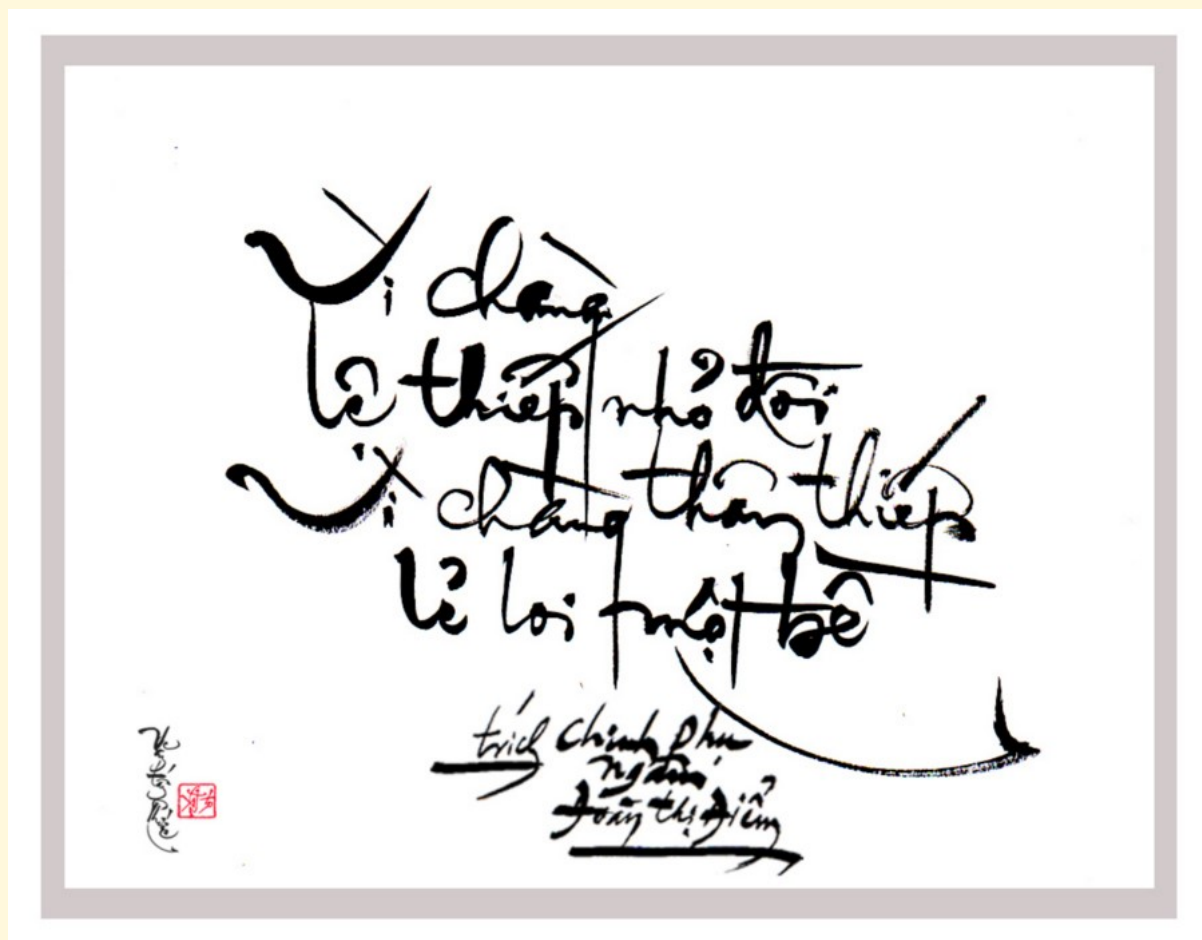 Vì chàng
lệ thiếp nhỏ đôi
Vì chàng thân thiếp
lẻ loi một bề
trích Chinh phụ
ngâm
Đoàn thị Điểm